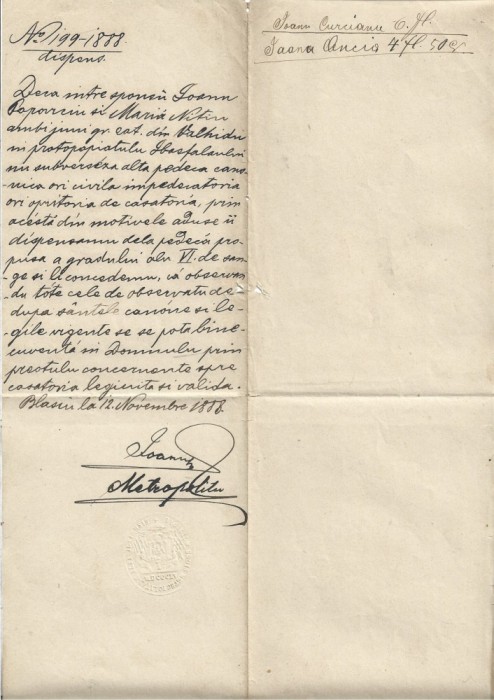 No 199-1888
dispens.
Deca intre sponsii Ioann
Popoviciu si Maria Nitiu
ambi juni gr. cat. din Valhidu
in protopopiatulu Ibasfalaului
nu subverseza alta pedeca cano-
nica ori civila impedecatoria
ori opritoria de casatoria, prin
acésta din motivele aduse ii
dispensamu dela pedecá pro-
pusa a gradului alu VI. de san-
ge si li concedemu, cá observan-
du tóte cele de observatu de-
dupa sântele canóne si le-
gile vigente se se pota bine-
cuventá in Domnulu prin
preotulu concernente spre
casatoria legiuita si valida.
Blasiu la 12. Novembre 1888.
Ioann
Metropolitu
Ioann Curcianu 6. fl.
Ioana Ancia 4 fl. 50